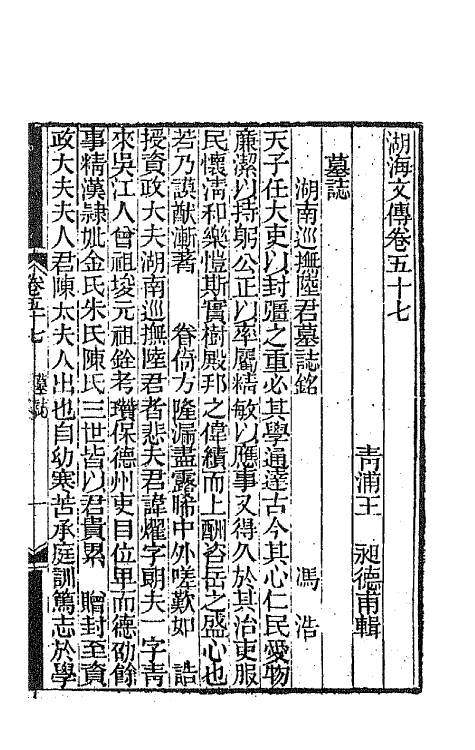 湖海文傳卷五十七
青浦王　昶德甫輯
墓誌
湖南巡撫陸君墓誌銘　馮　浩
天子任大吏以封疆之重必其學通達古今其心仁民愛物
廉潔以持躬公正以率屬精敏以應事又得久於其治吏服
民懷淸和樂愷斯實樹殿邦之偉績而上酬咨岳之盛心也
若乃謨猷漸著　眷倚方隆漏盡露晞中外嗟歎如　誥
授資政大夫湖南巡撫陸君者悲夫君諱燿字朗夫一字靑
來吳江人曾祖埈元祖銓考瓚保德州吏目位卑而德劭餘
事精漢隷妣金氏朱氏陳氏三世皆以君貴累　贈封至資
政大夫夫人君陳太夫人出也自幼寒苦承庭訓篤志於學
卷五十七　墓誌　一